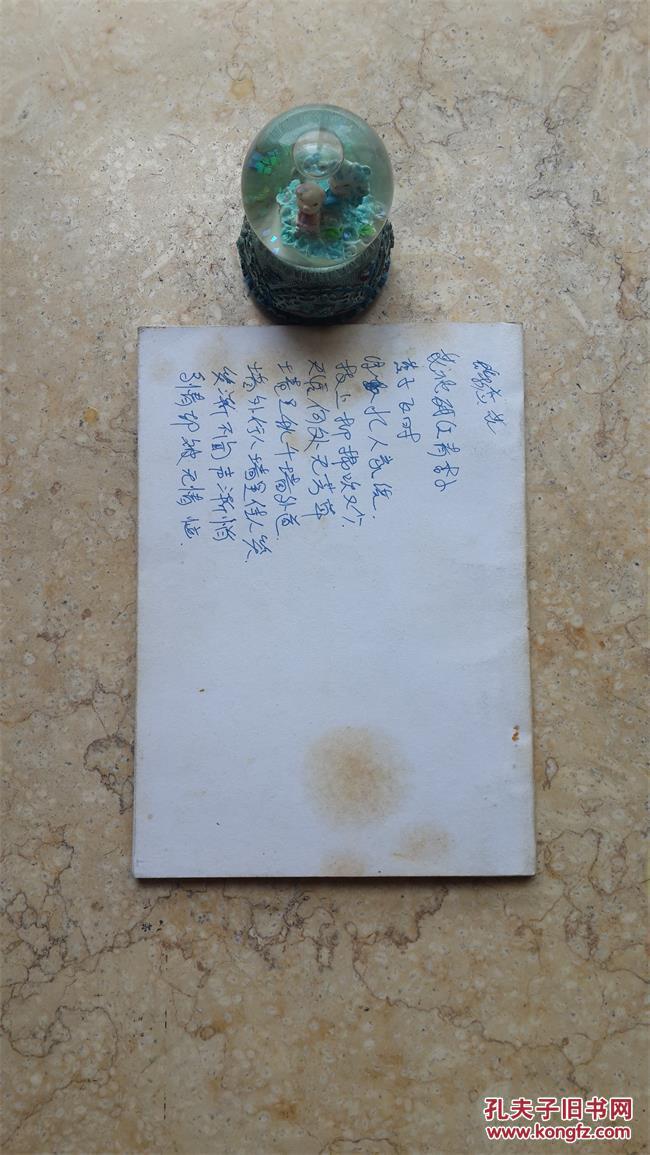 蝶恋花
花褪残红青杏小
燕子飞时
绿水人家绕.
枝上柳绵吹又少
天涯何处无芳草
墙里秋千墙外道
墙外行人墙里佳人笑.
笑渐不闻声渐悄
多情却被无情恼.
孔夫子旧书网
www.kongfz.com